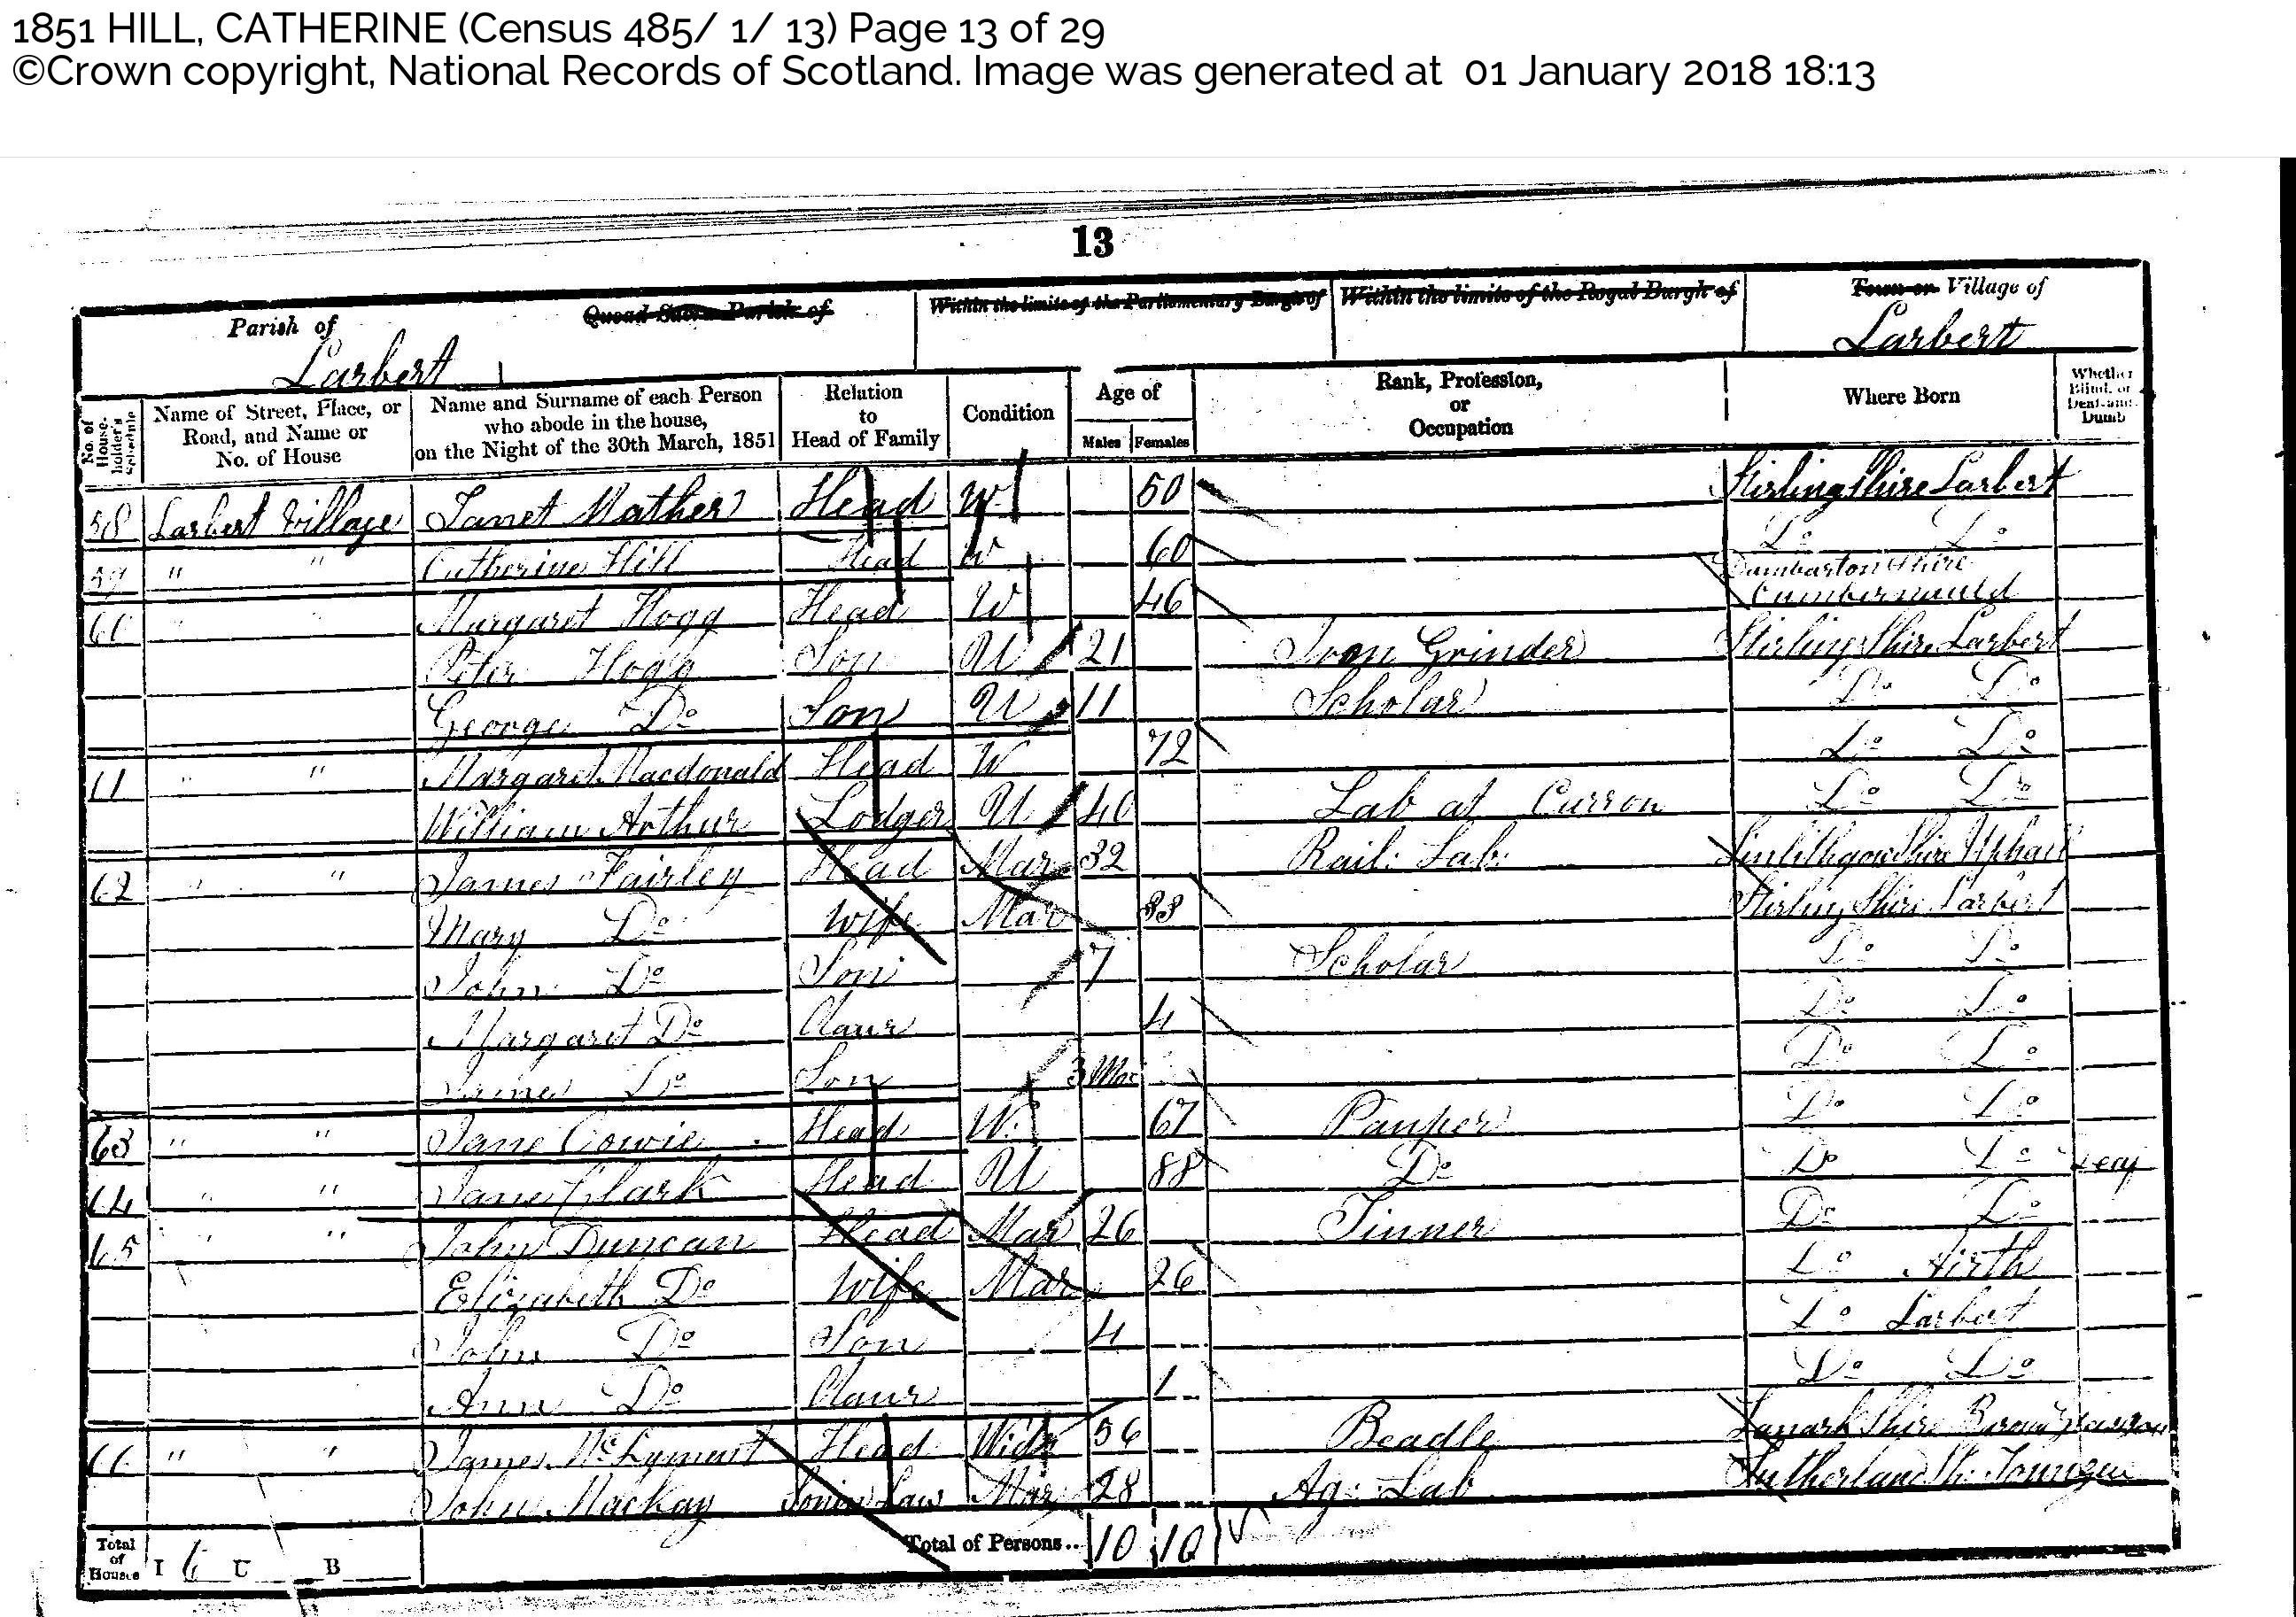 1851 HILL, CATHERINE (Census 485/ 1/ 13) Page 13 of 29
©Crown copyright, National Records of Scotland. Image was generated at 01 January 2018 18:13
13
Parish of Quoad Sacra Parish of Within the limits of the Parliamentary Burgh of Within the limits of the Royal Burgh of Town or Village of
Larbert Larbert
No. of House-holder's Schedule Name of Street, Place, or Road, and Name or No. of House Name and Surname of each Person who abode in the house, on the Night of the 30th March, 1851 Relation to Head of Family Condition Age of Males Females Rank, Profession, or Occupation Where Born Whether Blind, or Deaf-and-Dumb
58 Larbert Village Janet Mather Head W 50 Stirling Shire Larbert
59 " " Catherine Hill Head W 60 Do Do
60 " Margaret Hogg Head W 46 Dumbarton Shire Cumbernauld
Peter Hogg Son U 21 Iron Grinder Stirling Shire Larbert
George Do Son U 11 Scholar Do Do
61 " " Margaret Macdonald Head W 72 Do Do
William Arthur Lodger U 40 Lab at Carron Do Do
62 " " James Fairley Head Mar 32 Rail: Lab: Linlithgow Shire Uphall
Mary Do Wife Mar 33 Stirling Shire Larbert
John Do Son 7 Scholar Do Do
Margaret Do Daur 4 Do Do
James Do Son 3 Mo: Do Do
63 " " Jane Cowie Head W. 67 Pauper Do Do
64 " " Jane Clark Head U 88 Do Do Do
65 " " John Duncan Head Mar 26 Tinner Do Do
Elizabeth Do Wife Mar 26 Do Airth
John Do Son 4 Do Larbert
Ann Do Daur 1 Do Do
66 " " James McLymont Head Widr 56 Beadle Lanark Shire
John Mackay Son in Law Mar 28 Ag: Lab Sutherland Sh:
Total of Houses I 6 U B Total of Persons.. 10 10